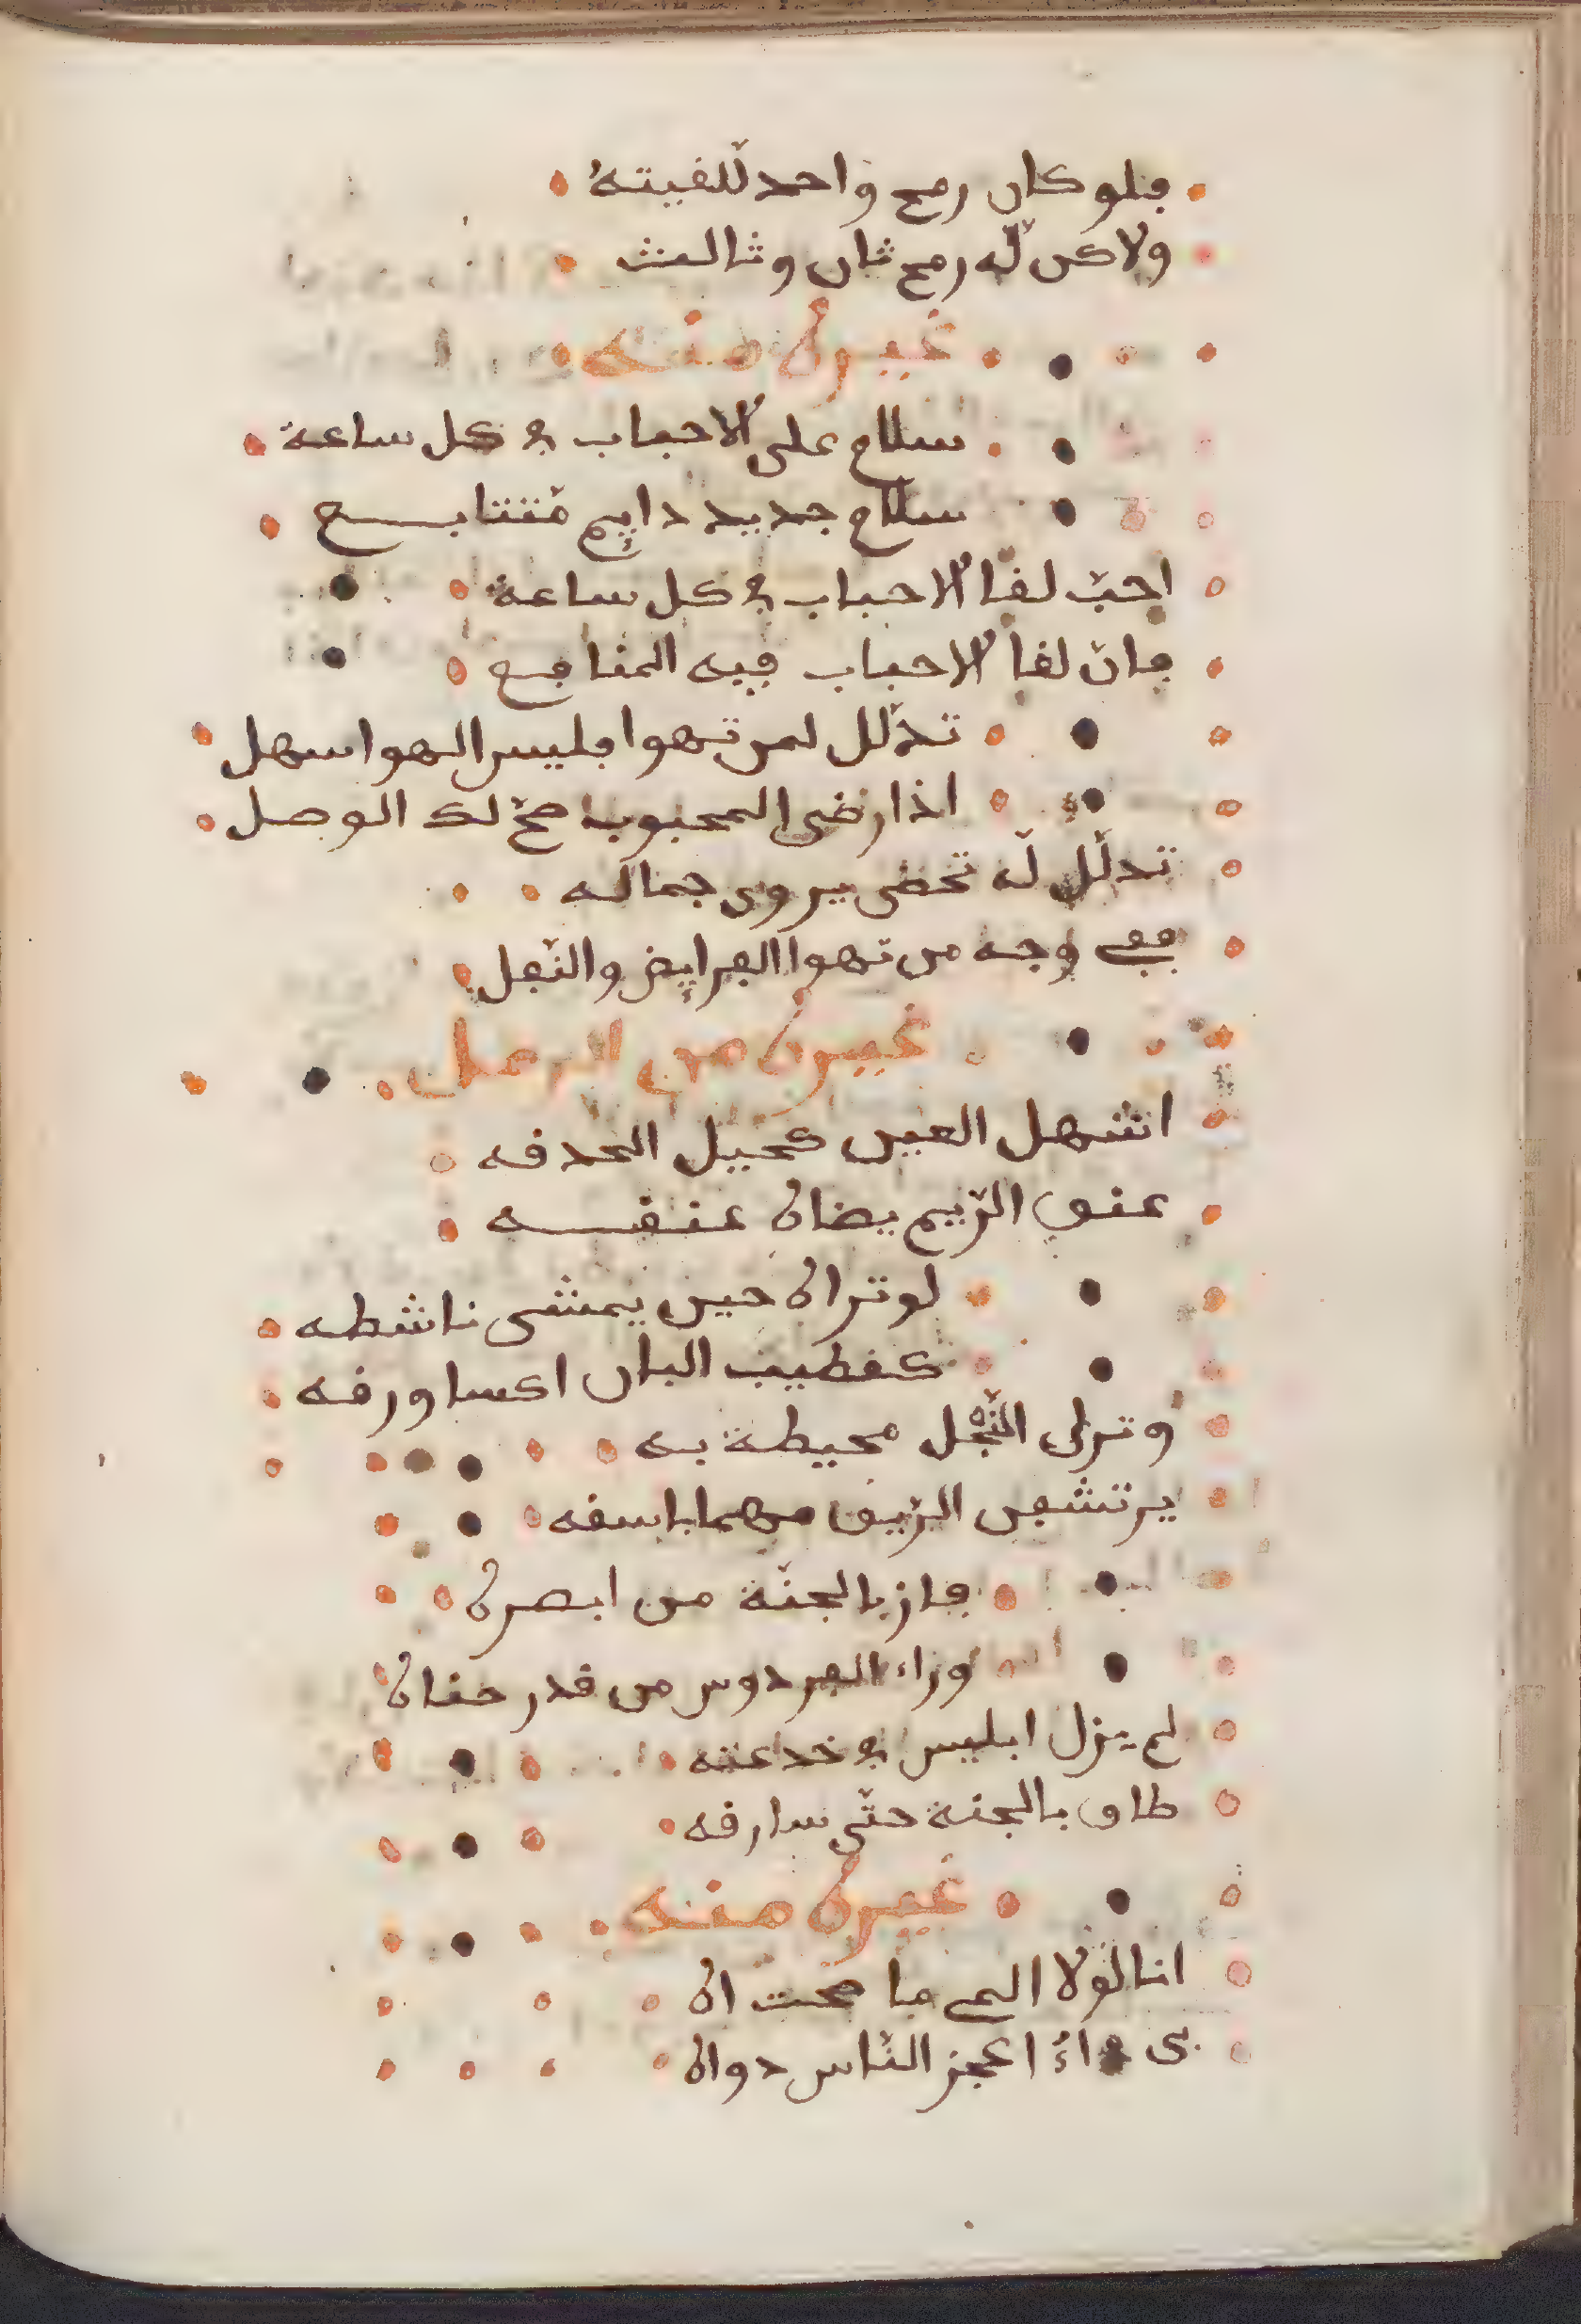 فلو كان رمح واحد للقيته
ولاكن له رمح ثان وثالث
غيره منه
سلام على الاحباب في كل ساعة
سلام جديد دايم متتابع
احب لقا الاحباب في كل ساعة
فان لقا الاحباب فيه المنافع
تذلل لمن تهوا فليس الهوا سهل
اذا رضى المحبوب صح لك الوصل
تدلل له تحضى بروى جماله
ففي وجه من تهوا الفرايض والنفل
غيره من الرمل
اشهل العين كحيل الحدقه
عنق الريم يضاه عنقه
لو تراه حين يمشى ناشطه
كقطيب البان اكسا ورقه
وترى النجل محيطة به
يرتشفن الريق مهما باسقه
فاز بالجنة من ابصره
وراء الفردوس من قدر حقاه
لم يزل ابليس في خدعته
طاف بالجنة حتى سارقه
غيره منه
انا لولا الم ما صحت اه
بى داء اعجز الناس دواه